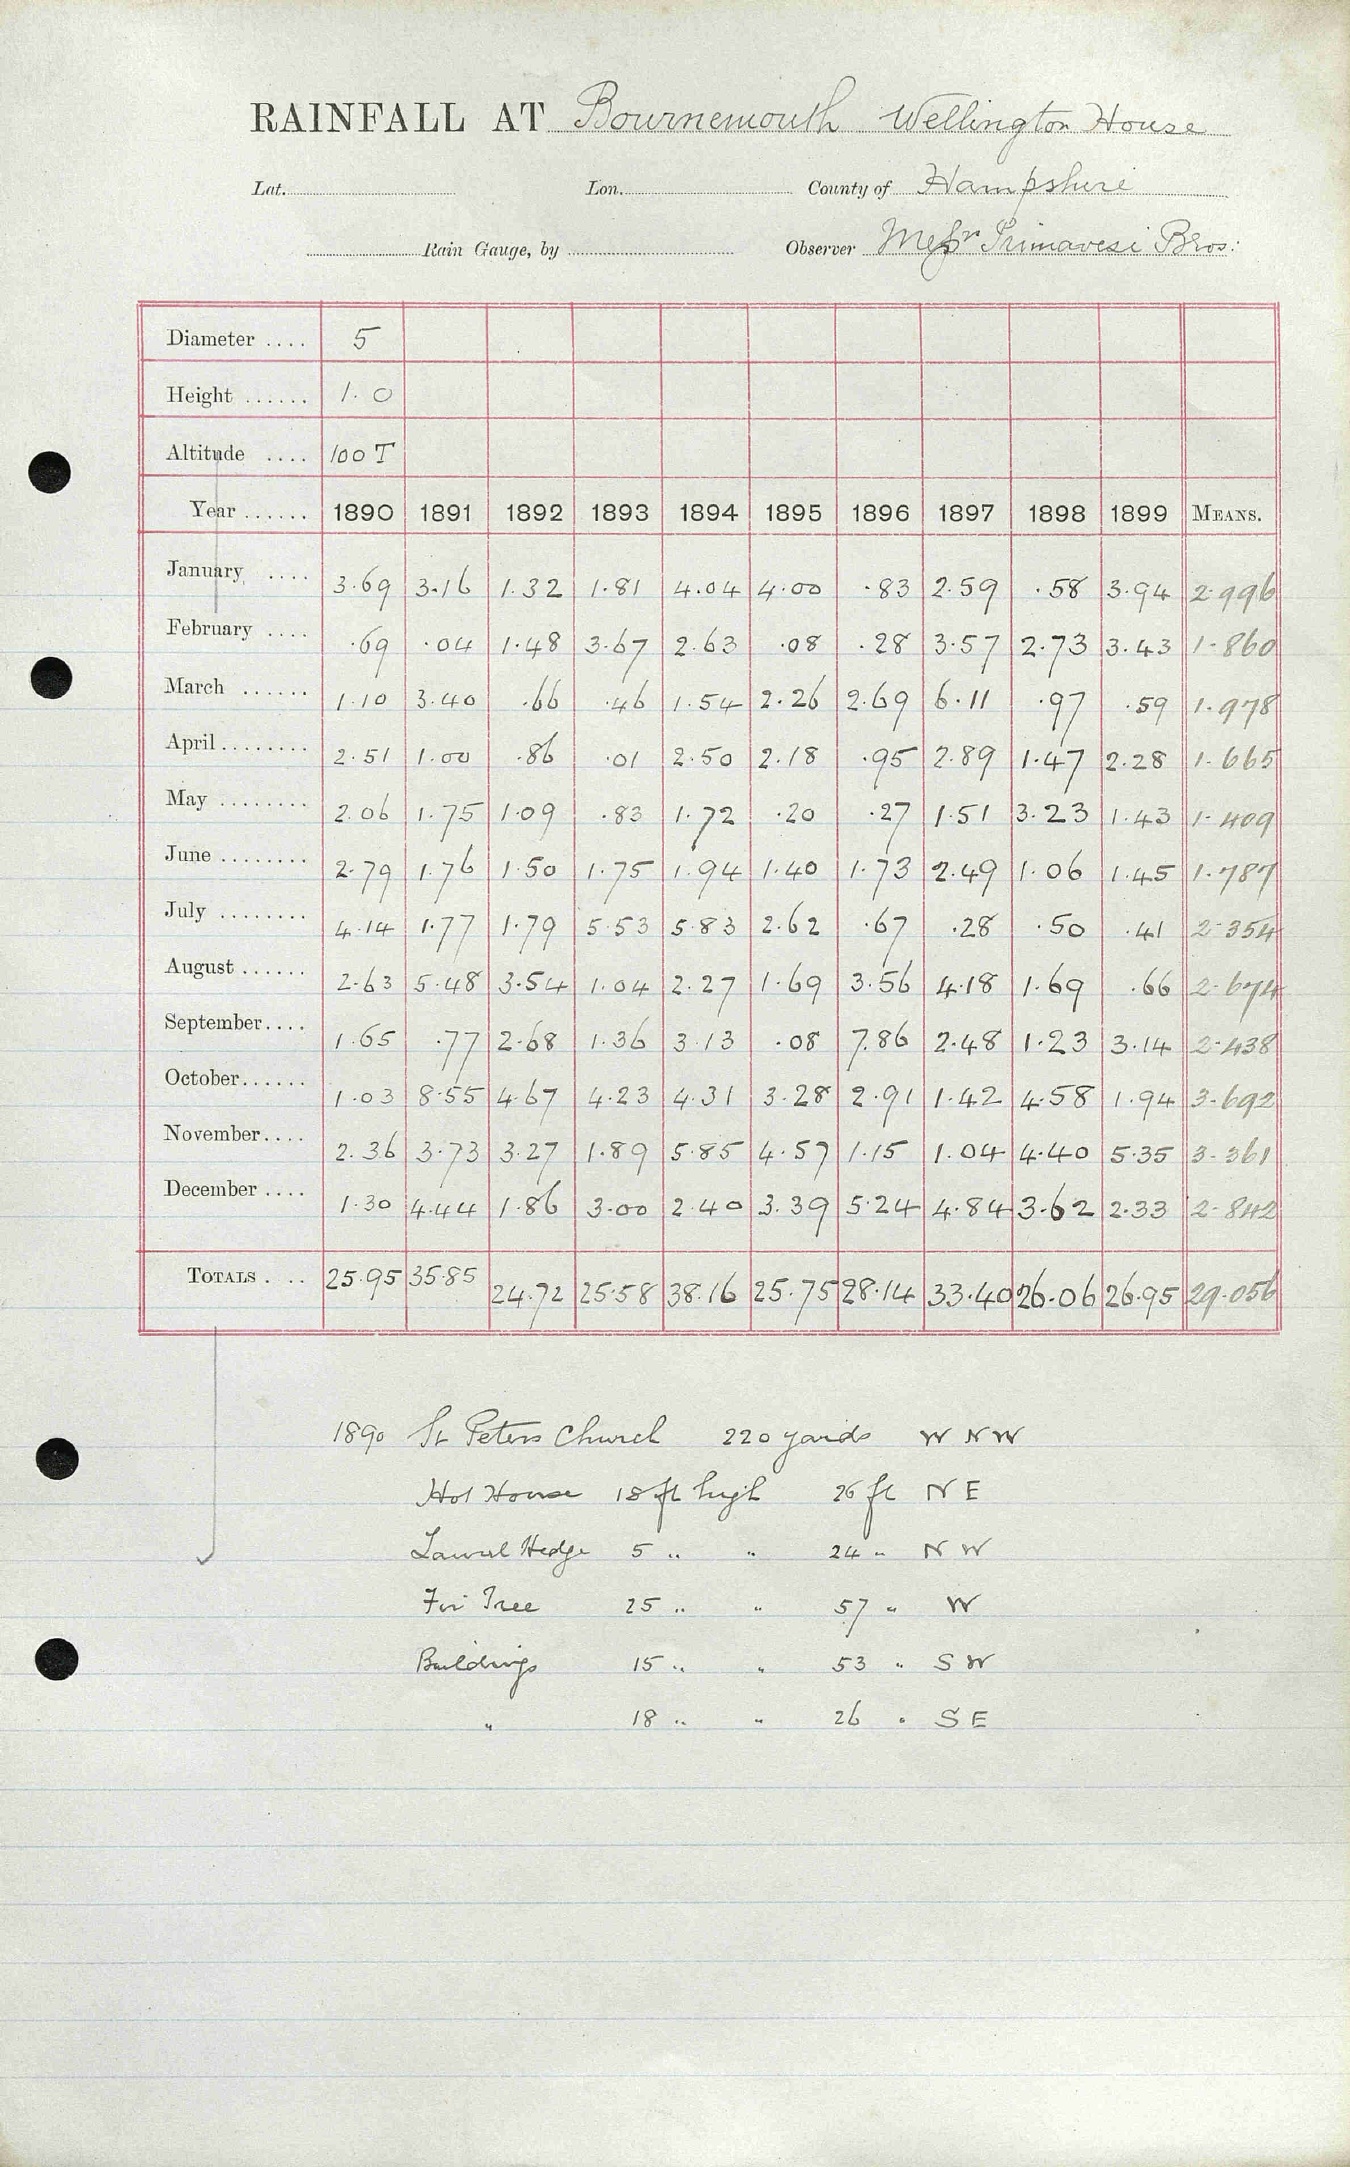 RAINFALL AT Bournemouth Wellington House
Lat. Lon. County of Hampshire
Rain Gauge, by Observer Messrs Primavesi Bros:
Diameter .... 5
Height ...... 1.0
Altitude .... 100 T
Year ...... 1890 1891 1892 1893 1894 1895 1896 1897 1898 1899 MEANS.
January .... 3.69 3.16 1.32 1.81 4.04 4.00 .83 2.59 .58 3.94 2.996
February .... .69 .04 1.48 3.67 2.63 .08 .28 3.57 2.73 3.43 1.860
March ...... 1.10 3.40 .66 .46 1.54 2.26 2.69 6.11 .97 .59 1.978
April ........ 2.51 1.00 .86 .01 2.50 2.18 .95 2.89 1.47 2.28 1.665
May ........ 2.06 1.75 1.09 .83 1.72 .20 .27 1.51 3.23 1.43 1.409
June ........ 2.79 1.76 1.50 1.75 1.94 1.40 1.73 2.49 1.06 1.45 1.787
July ........ 4.14 1.77 1.79 5.53 5.83 2.62 .67 .28 .50 .41 2.354
August ...... 2.63 5.48 3.54 1.04 2.27 1.69 3.56 4.18 1.69 .66 2.674
September .... 1.65 .77 2.68 1.36 3.13 .08 7.86 2.48 1.23 3.14 2.438
October ...... 1.03 8.55 4.67 4.23 4.31 3.28 2.91 1.42 4.58 1.94 3.692
November .... 2.36 3.73 3.27 1.89 5.85 4.57 1.15 1.04 4.40 5.35 3.361
December .... 1.30 4.44 1.86 3.00 2.40 3.39 5.24 4.84 3.62 2.33 2.842
TOTALS . .. 25.95 35.85 24.72 25.58 38.16 25.75 28.14 33.40 26.06 26.95 29.056
1890 St Peters Church 220 yards W N W
Hot House 18 ft high 26 ft N E
Laurel Hedge 5 " " 24 " N W
Fir Tree 25 " " 57 " W
Buildings 15 " " 53 " S W
" 18 " " 26 " S E